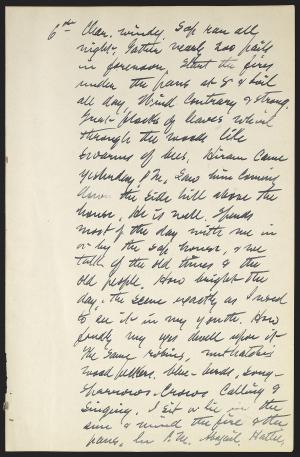 6th Clear, windy. Sap ran all
night. Gather nearly 200 pails
in forenoon. Start the fires
under the pans at 8 & boil
all day. Wind contrary & strong.
Great flocks of leaves whirl
through the woods like
swarms of bees. Hiram came
yesterday P.M. Saw him coming
down the side hill above the
house. He is well. Spends
most of the day with me in
or by the sap house, & we
talk of the old times & the
old people. How bright the
day, the scene exactly as I used
to see it in my youth. How
fondly my eyes dwell upon it.
The same robins, nuthatches
wood peckers, blue-birds, song-
sparrows, crows calling &
singing. I sit or lie in the
sun & mind the fire & the
pans. In P.M. Abigail,